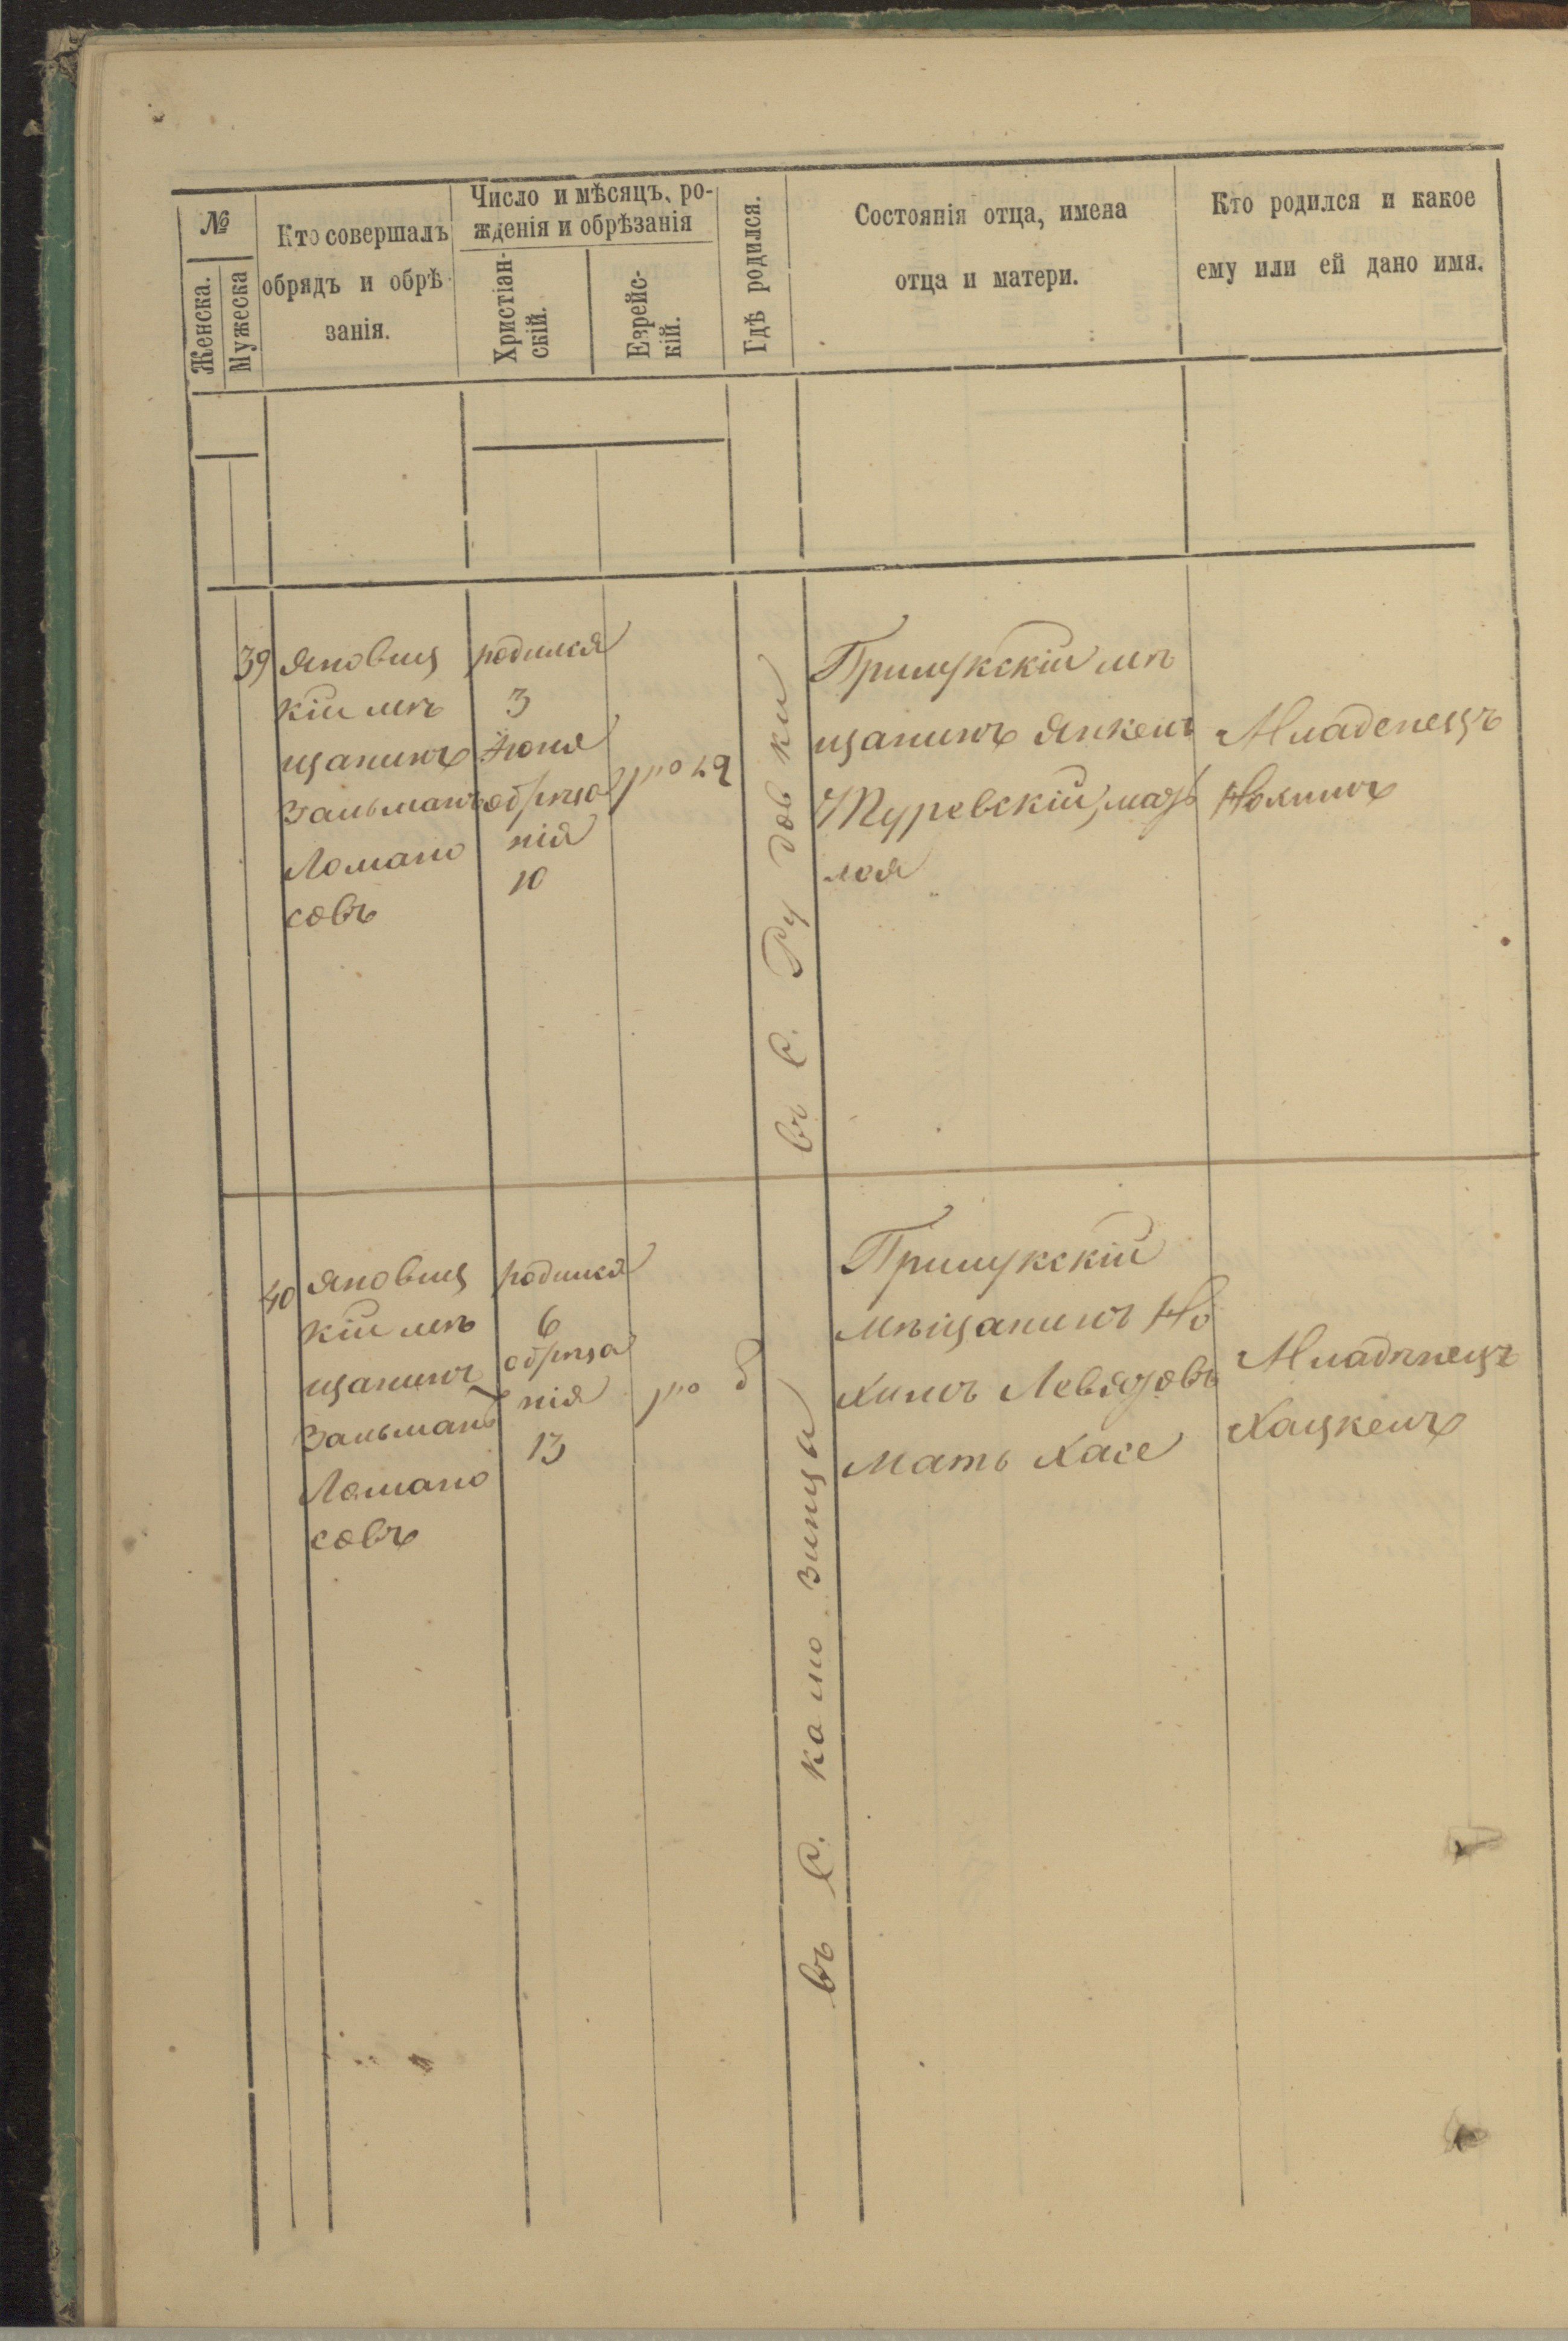 №
Женска.
Мужеска
Кто совершалъ
обрядъ и обрѣ-
занія.
Число и мѣсяцъ, ро-
жденія и обрѣзанія
Христіан-
скій.
Еврейс-
кій.
Гдѣ родился.
Состоянія отца, имена
отца и матери.
Кто родился и какое
ему или ей дано имя.
39
Яновиц
кій мѣ
щанинъ
Зальманъ
Ломано
совъ
родился
3
Іюня
обрѣза
нія
10
въ с. Рудовки
Прилукскій мѣ
щанинъ Янкель
Туревскій, мать
Младенецъ
Нохимъ
40
Яновиц
кій мѣ
щанинъ
Зальманъ
Ломано
совъ
родился
6
обрѣза
нія
13
въ с.
Прилукскій
мѣщанинъ Но
химъ Левятовъ
Мать Хасе
Младѣнецъ
Хацкель